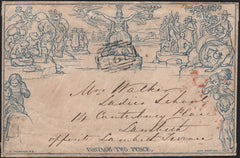 Mrs Walker
Ladies School
14 Canterbury Place
Lambeth
opposite Lambeth Terrace
POSTAGE TWO PENCE.